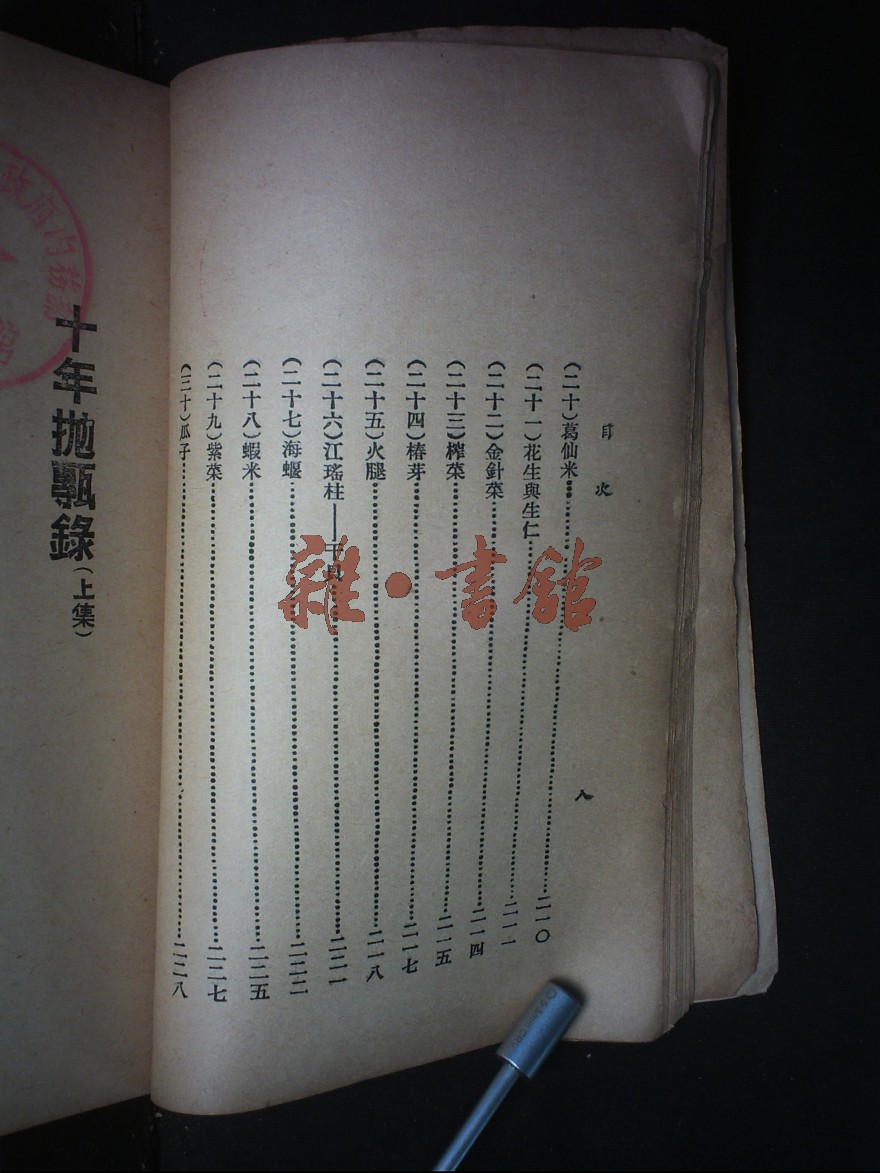 目次
八
(二十)葛仙米……二一〇
(二十一)花生與生仁……二一一
(二十二)金針菜……二一四
(二十三)榨菜……二一五
(二十四)椿芽……二一七
(二十五)火腿……二一八
(二十六)江瑤柱——干貝……二二一
(二十七)海蝘……二二二
(二十八)蝦米……二二五
(二十九)紫菜……二二七
(三十)瓜子……二二八
十年拋甎錄(上集)
政府內務
雜·書館